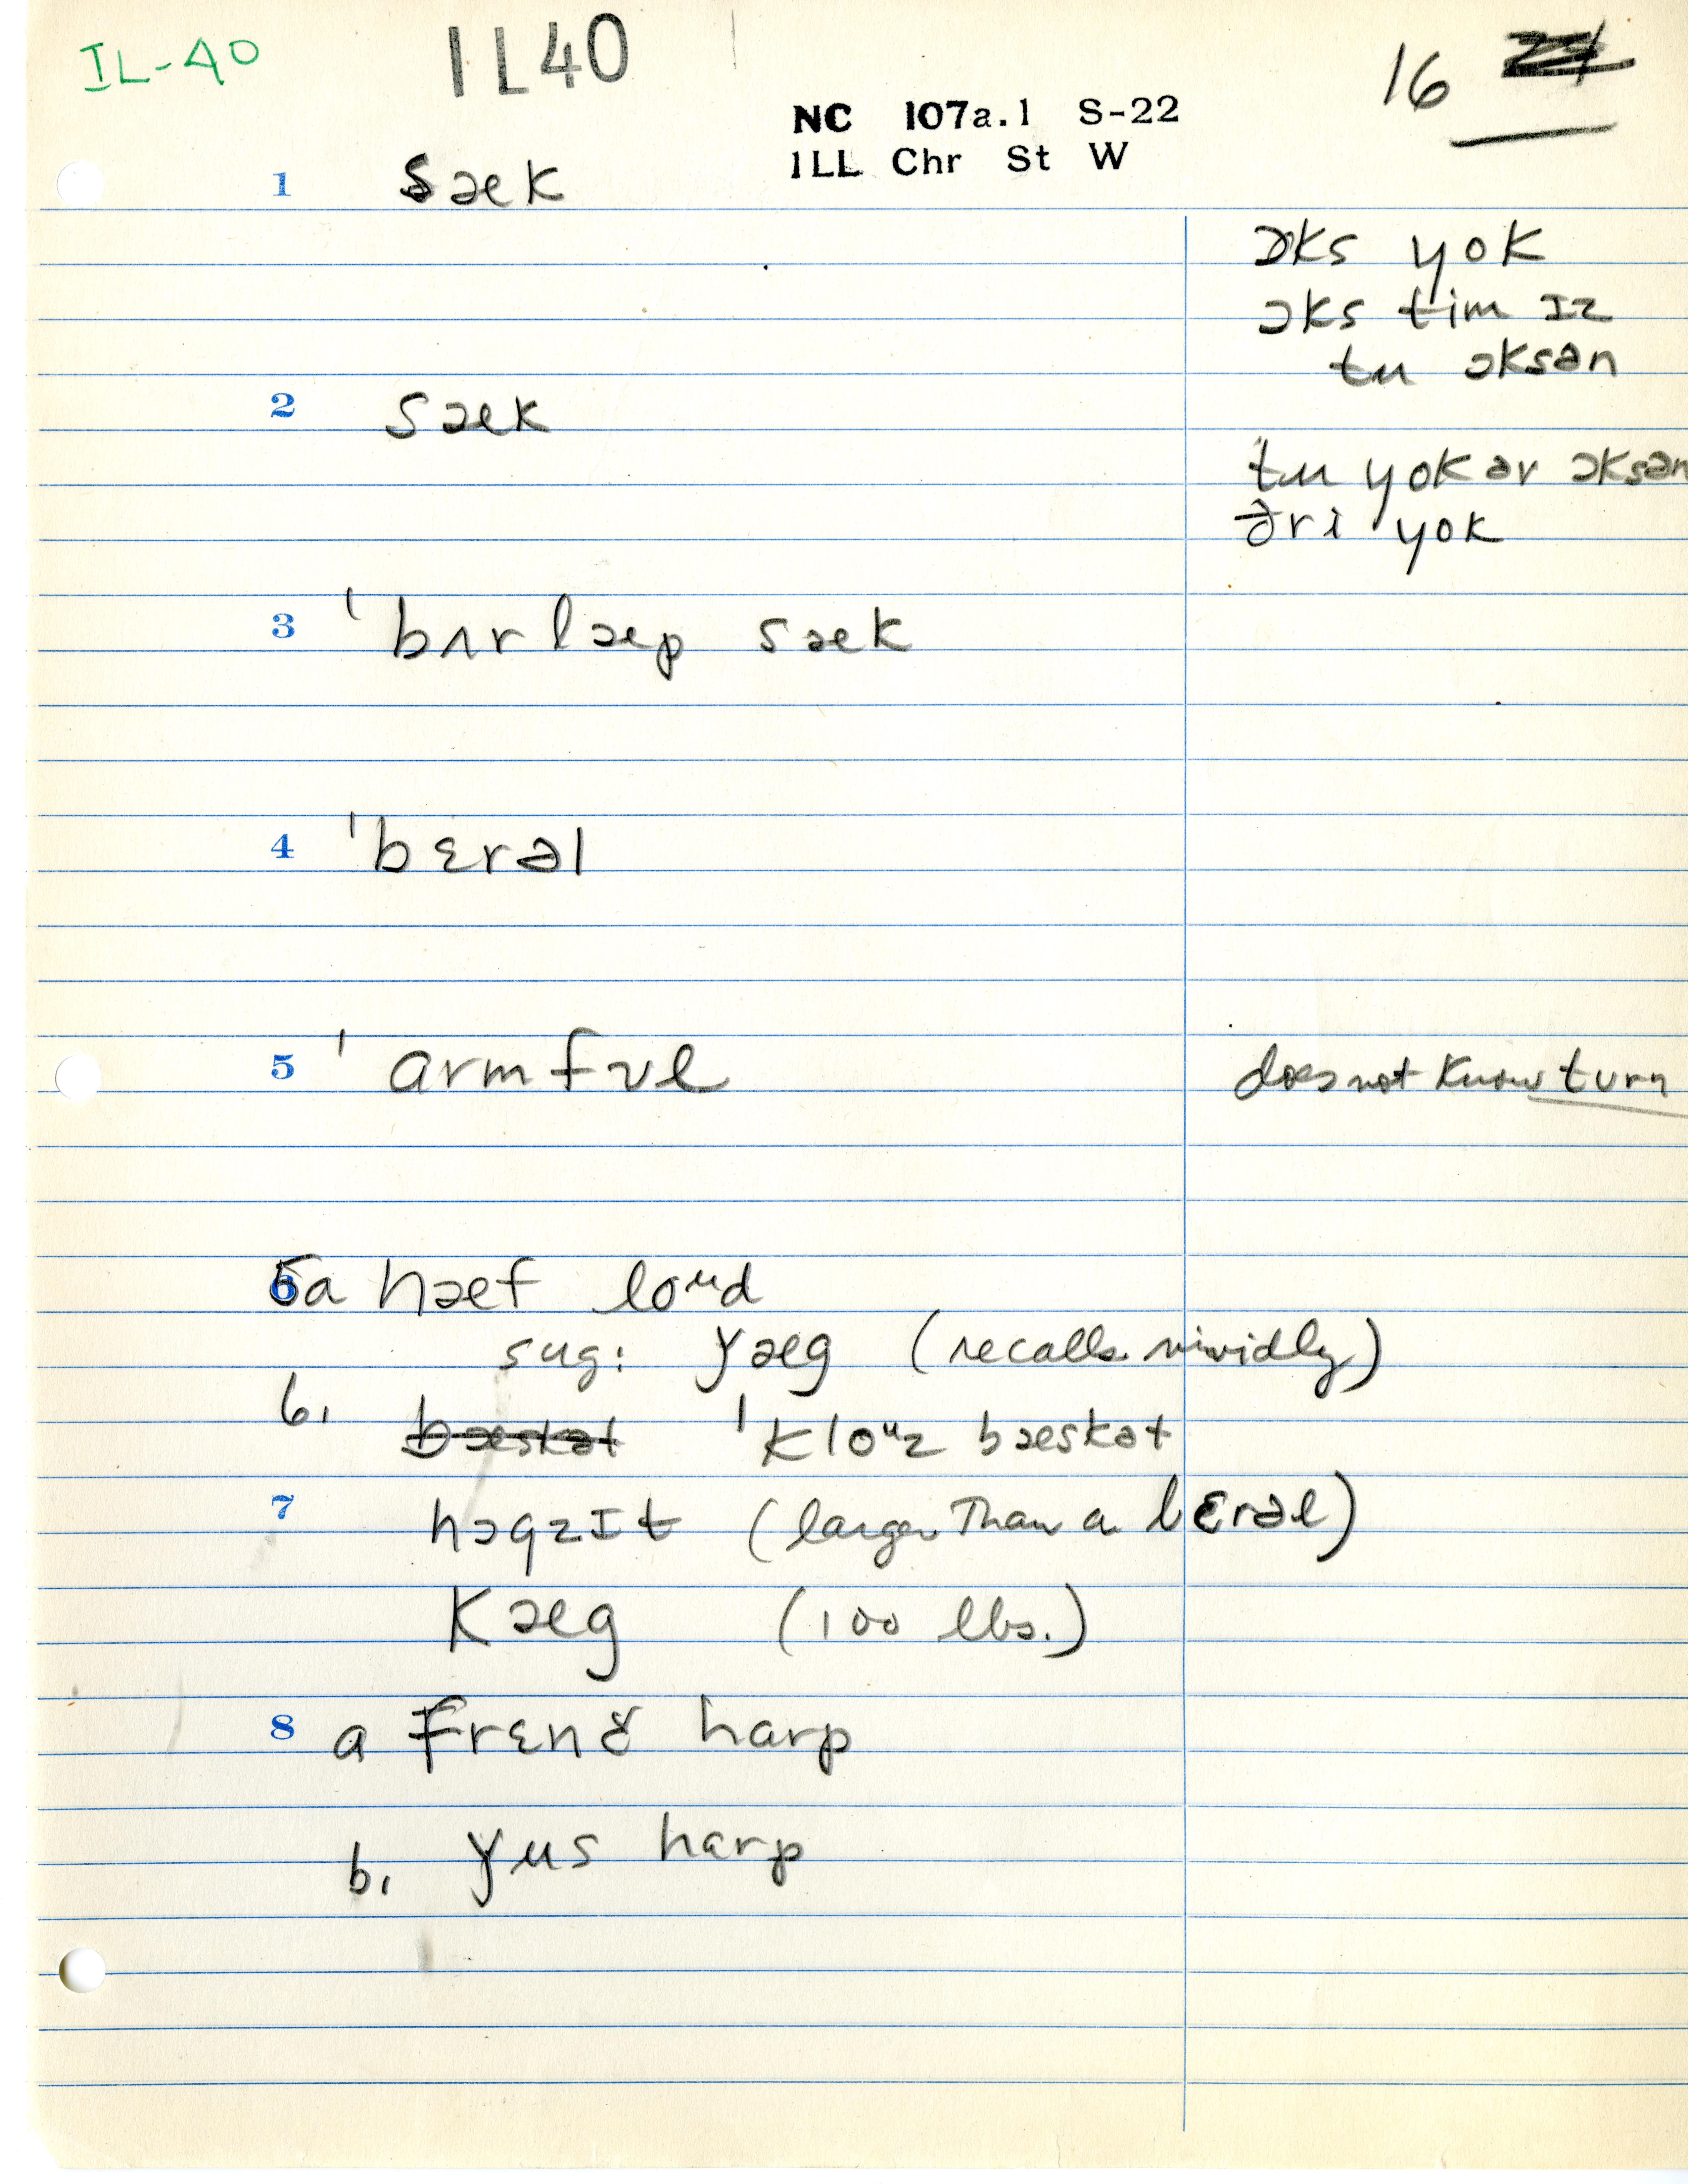 IL-40 IL40 16
NC 107a.1 S-22
ILL Chr St W
1 sæk
ɔks yok
ɔks tim ɪz
tu ɔksən
2 sæk
tu yok ər ɔksən
θri yok
3 ˈbʌrlæp sæk
4 ˈbɛrəl
5 ˈarmfʊl
does not know turn
5a hæf loᵘd
sug: ǰæg (recalls vividly)
6. bæskət ˈkloᵘz bæskət
7 hɔgzɪt (larger than a bɛrəl)
kæg (100 lbs.)
8 a frɛnč harp
b. ǰus harp